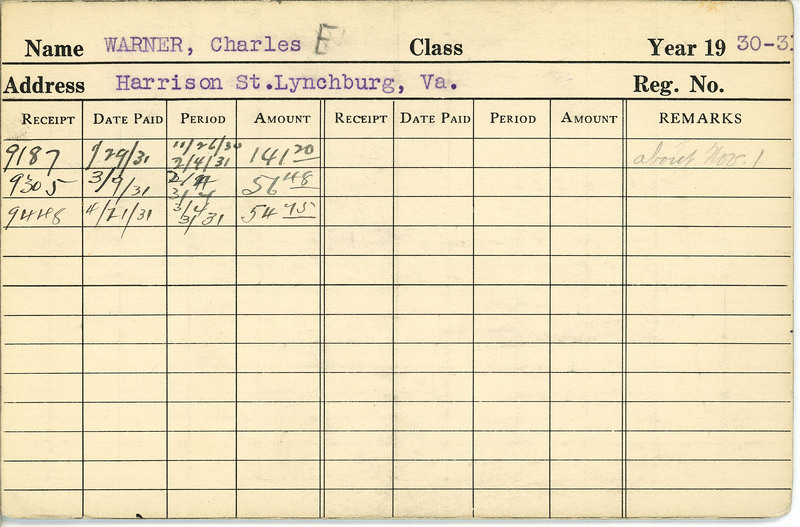 Name WARNER, Charles E Class Year 19 30-31
Address Harrison St.Lynchburg, Va. Reg. No.
RECEIPT DATE PAID PERIOD AMOUNT RECEIPT DATE PAID PERIOD AMOUNT REMARKS
9187 1/29/31 11/26/30 2/4/31 141 20 about Nov. 1
9305 3/9/31 2/4 3/4 56 48
9448 4/21/31 3/4 3/31 54 75